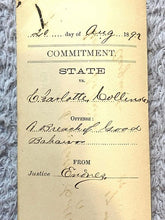 20 day of Aug 1892
COMMITMENT.
STATE
vs.
Charlotte Collins
OFFENSE:
A Breach of Good
Behavior
FROM
Justice